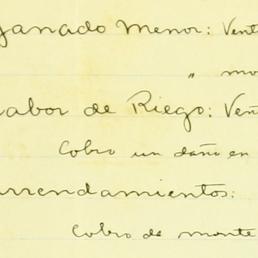 Ganado Menor: Vent
" mo
abor de Riego: Ven
Cobro un daño en
rrendamientos:
Cobro de monte